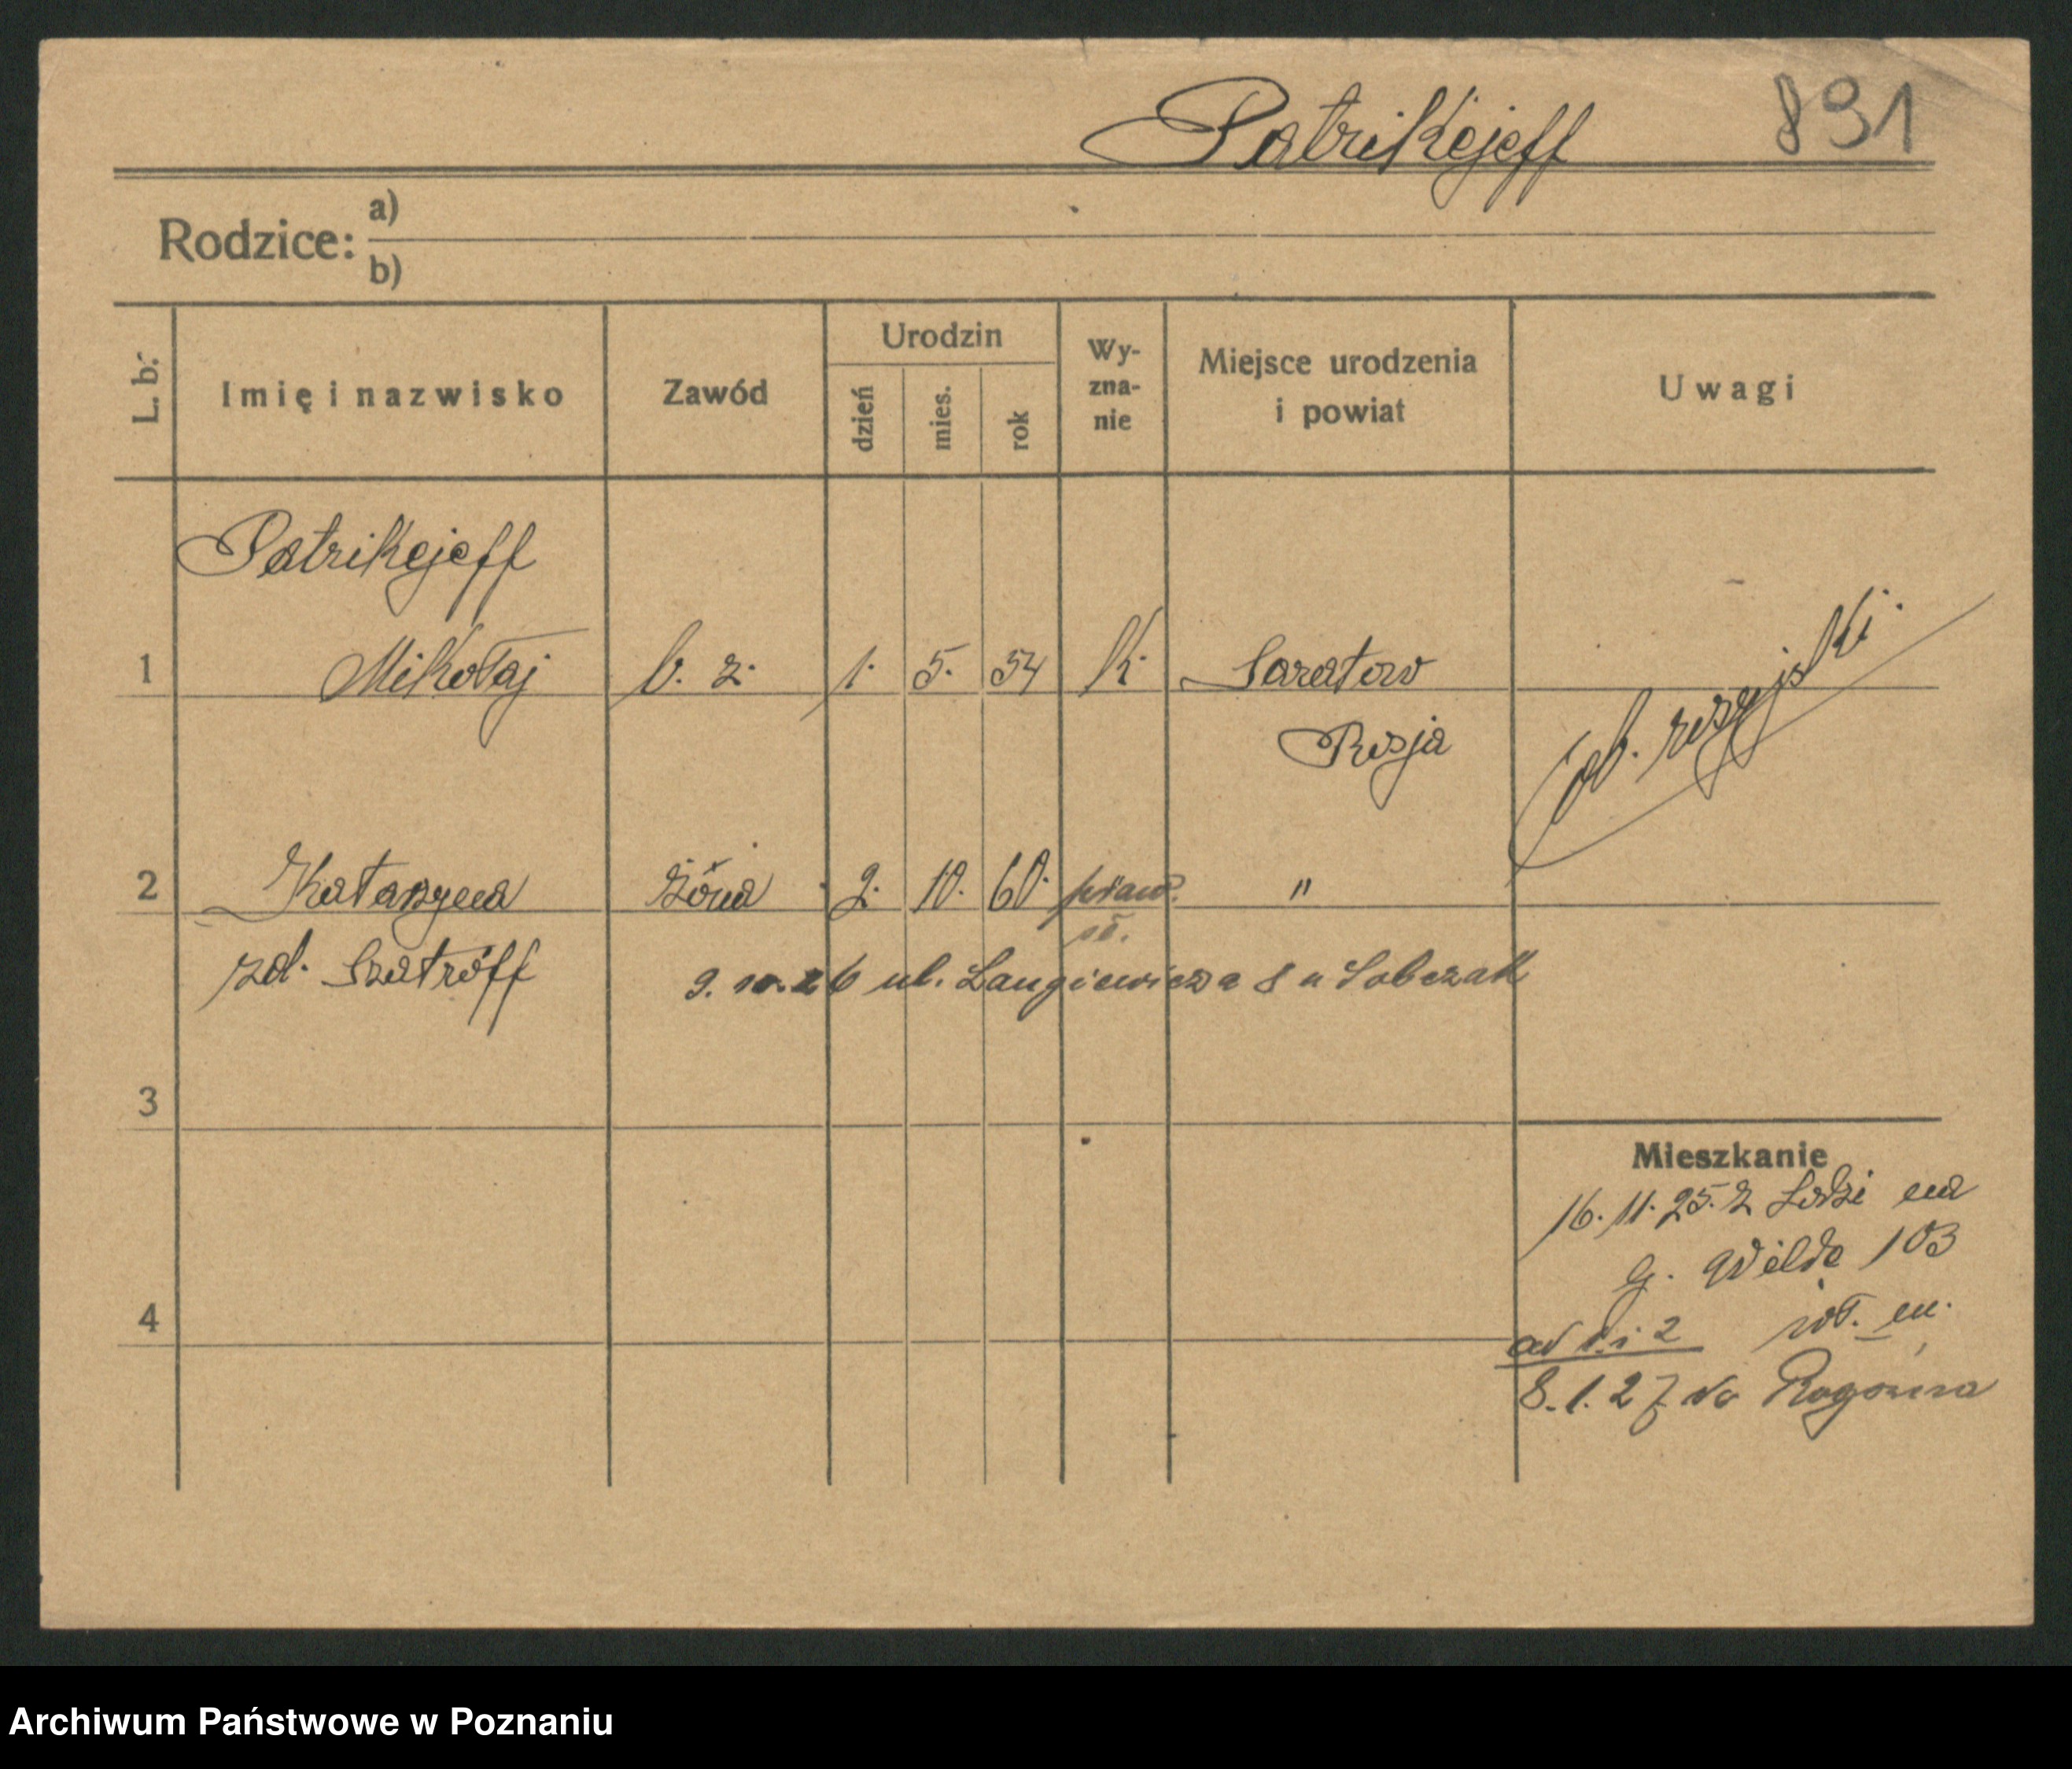 Patrikejeff 891
Rodzice: a)
b)
L. b. Imię i nazwisko Zawód Urodzin dzień mies. rok Wy-zna-nie Miejsce urodzenia i powiat Uwagi
Patrikejeff
1 Mikołaj b. z. 1. 5. 54 K. Saratow
Rosja
ob. rosyjski.
2 Katarzyna żona 2. 10. 60. praw. "
sł.
zd. Szatroff
9. 10. 26 ul. Langiewicza 8 u Sobczak
3
Mieszkanie
16. 11. 25. z Łodzi na
g. Wilde 103
4 wł. m.
ad 1. i 2
8. 1. 27 do Rogoźna
Archiwum Państwowe w Poznaniu